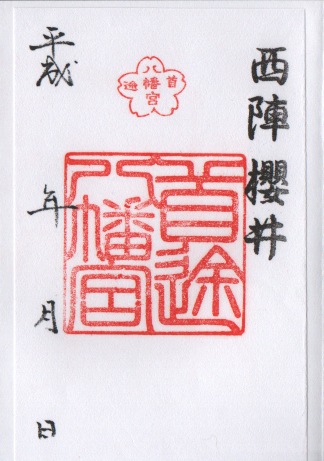 西陣櫻井
首途
八幡宮
首途八幡宮
平成 年 月 日